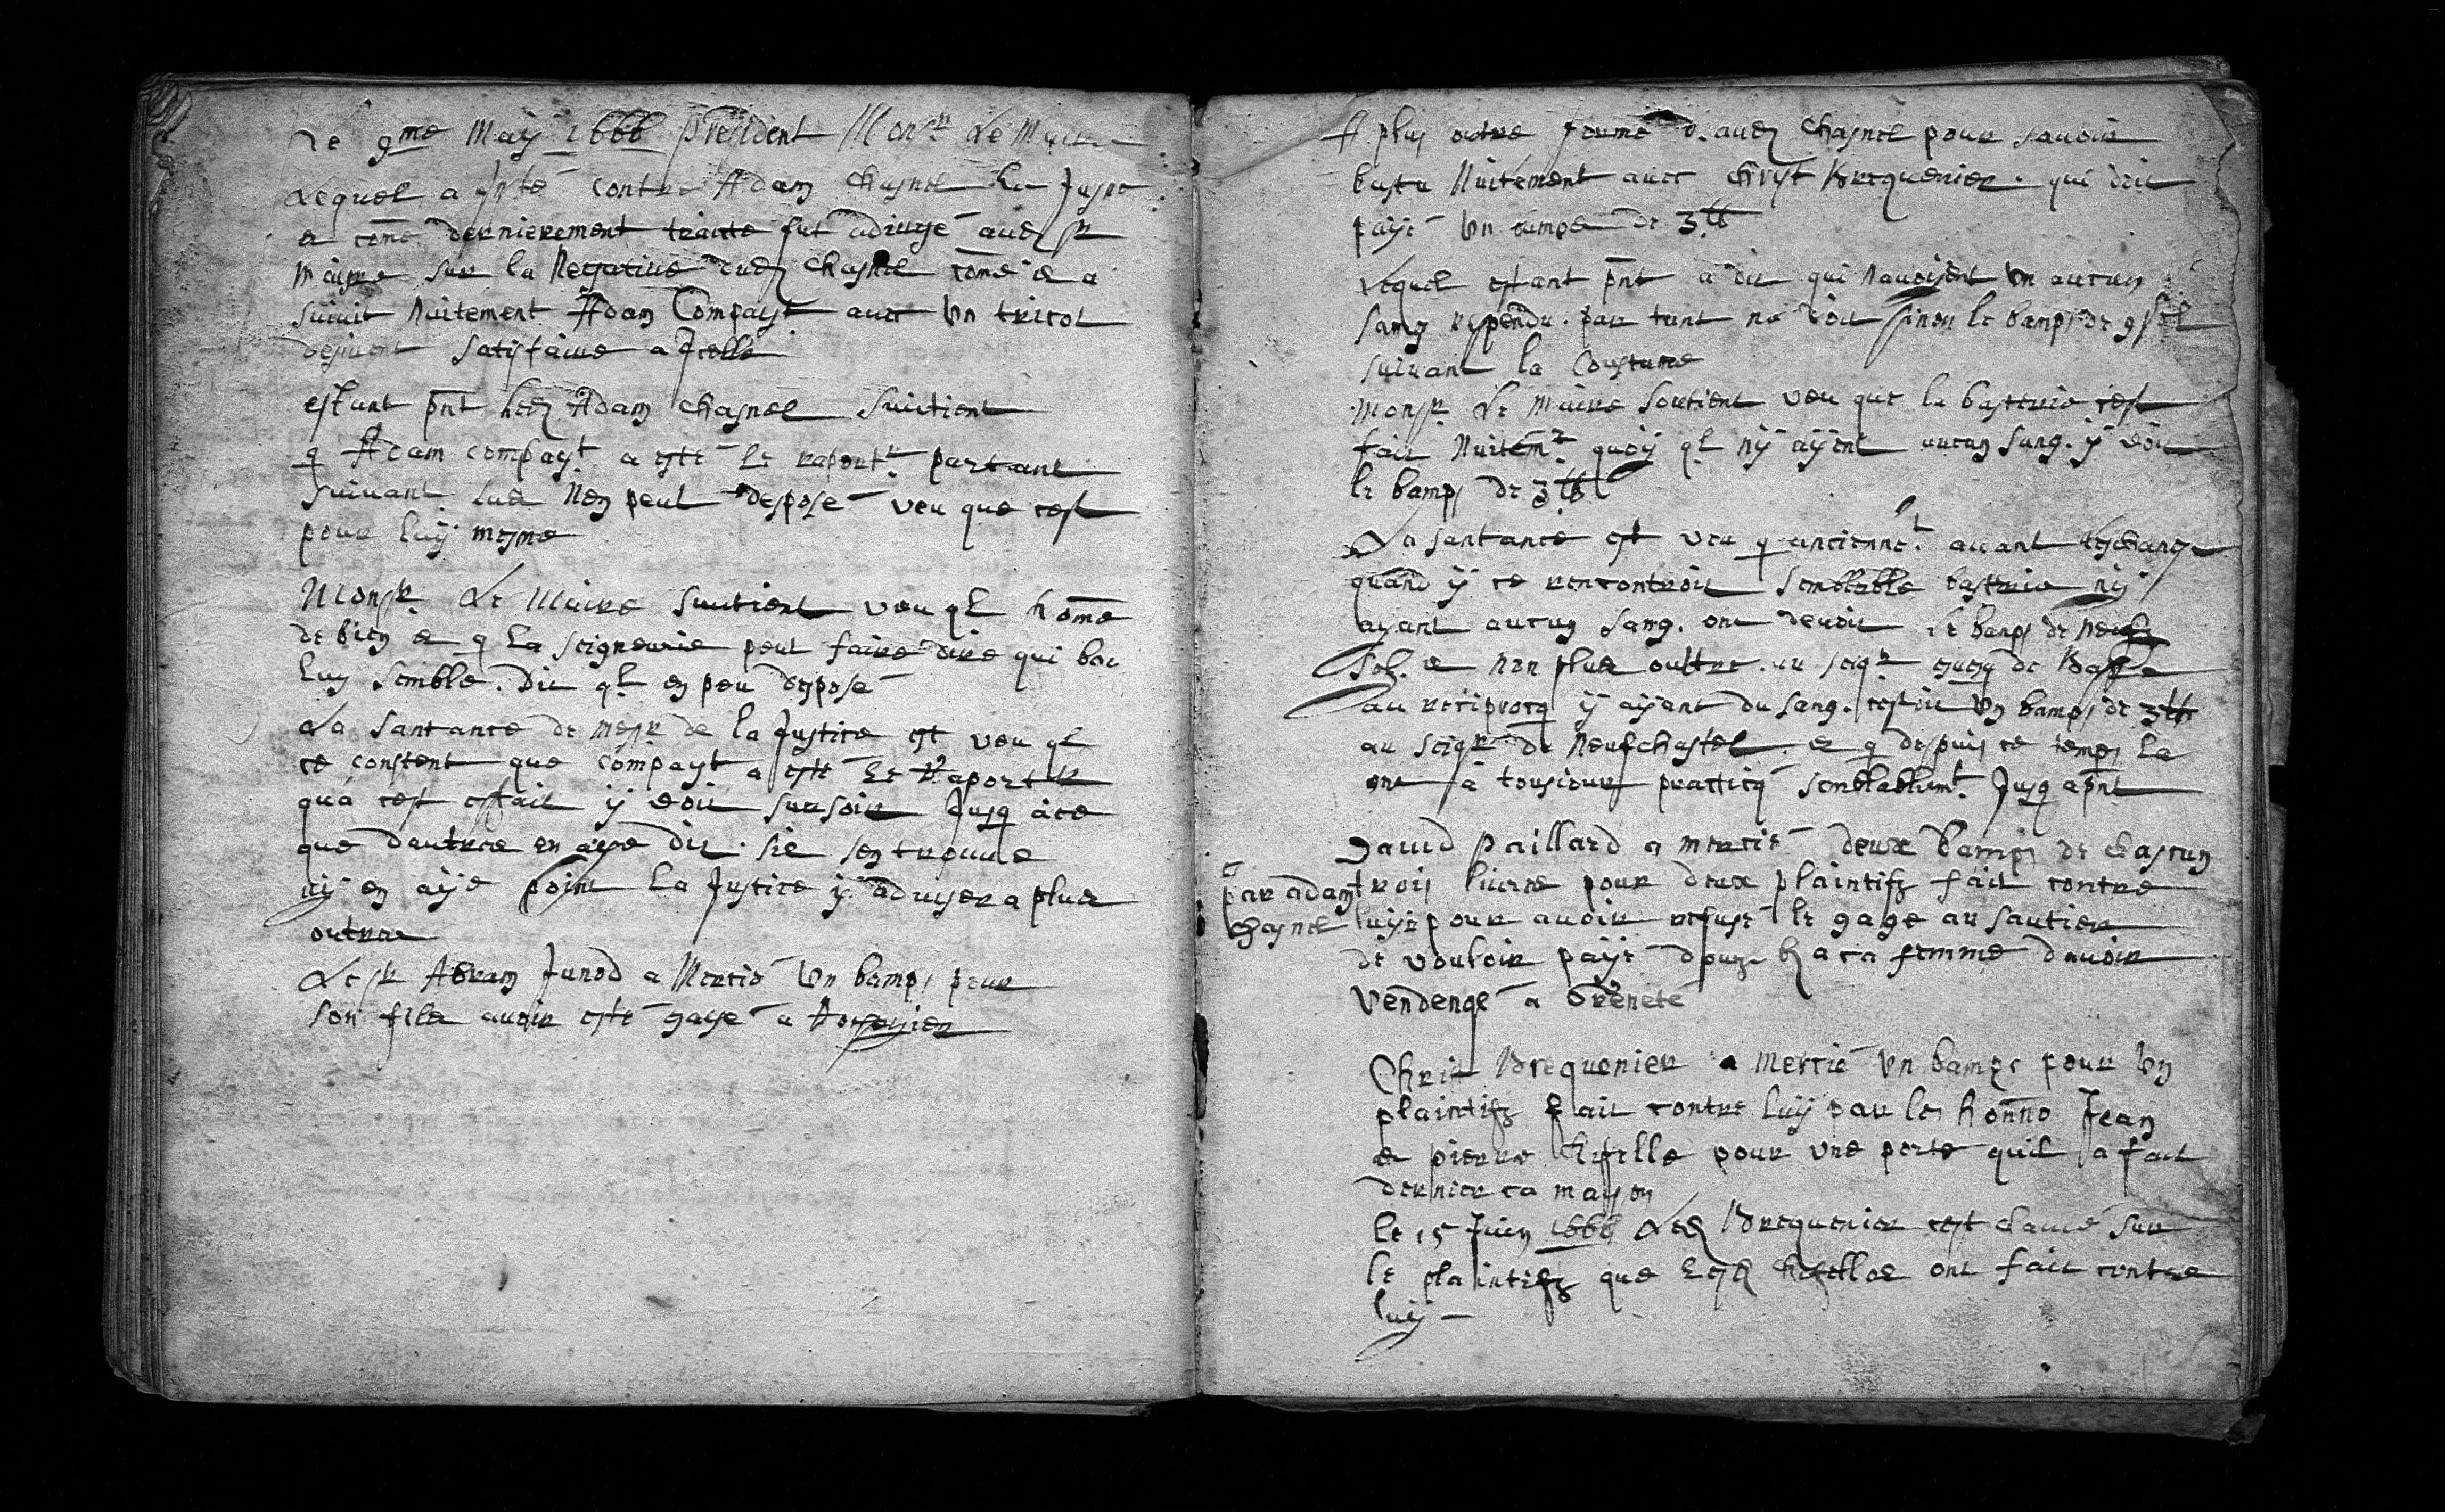 Le 9me May 1666 president Monsr Le Maire
Lequel a Insté contre Adam Chasnel La Juste
et come dernierement traitte fut adiugé aud sr
maire sur la Negative dud Chasnel come il a
suivit Nuitement Adam Compayt avec un tricot
desirent satisfaire a Jcelle
estant pnt led Adam Chasnel suutient
q Adam compayt a esté le raportr partant
suivant lud Nen peut desposé veu que cest
pour luy mesme
Monsr Le Maire suutient veu ql home
de bien et q La seigneurie peut faire dire qui bon
luy semble. Dit ql en peu desposé
La santance de messr de la Justice est veu ql
ce constent que compayt a esté le Raportr
qua cest effait y doit sursoir Jusq à ce
que dautres en aye dit. sil sen trouve
ny en aye point La Justice y aduisera plus
outre
Le sr Abram Junod a Mercié Un bamps pour
son filz avoir esté gagé a
A plus outre formé d. aud Chasnel pour savoir
bastu Nuitement avec Christ Brequenier. qui doit
payé Un bamps de 3 lb
Lequel estant pnt a dit qui Navoyent en aucun
sang rependu. par tant ne doit sinon le bamps de 9 sol
suivant la Coustume
Monsr Le Maire soutient veu que la basterie cest
fait Nuitemt quoy ql ny ayent aucun sang. y doit
le bamps de 3 lb
La santance est veu q anciennemt avant leschange
quand y ce rencontroit semblable basterie ny
ayant aucun sang. ont devoit le bamps de neufz
Sol. et non plus oultre. au seigr evesq de Basle
au reciprocq y ayant du sang. cestoit Un bamps de 3 lb
au seigr de Neufchastel. et q despuis ce temps la
ont a tousiour practicq semblablemt Jusq apnt
David Paillard a mercié deux bamps de chascun
trois livres pour deux plaintifz fait contre
par adam
Chasnel
luy pour avoir refusé le gage au sautier
de vouloir payé douze bz a ca femme davoir
Vendengé a Breneté
Christ Brequenier a mercié Un bamps pour Un
plaintifz fait contre luy par les honno Jean
et pierre pour une porte quil a fait
dernier ca mayson
le 15 Juin 1666 Led Brequenier cest clamé sur
le plaintifz que lesd ont fait contre
luy –